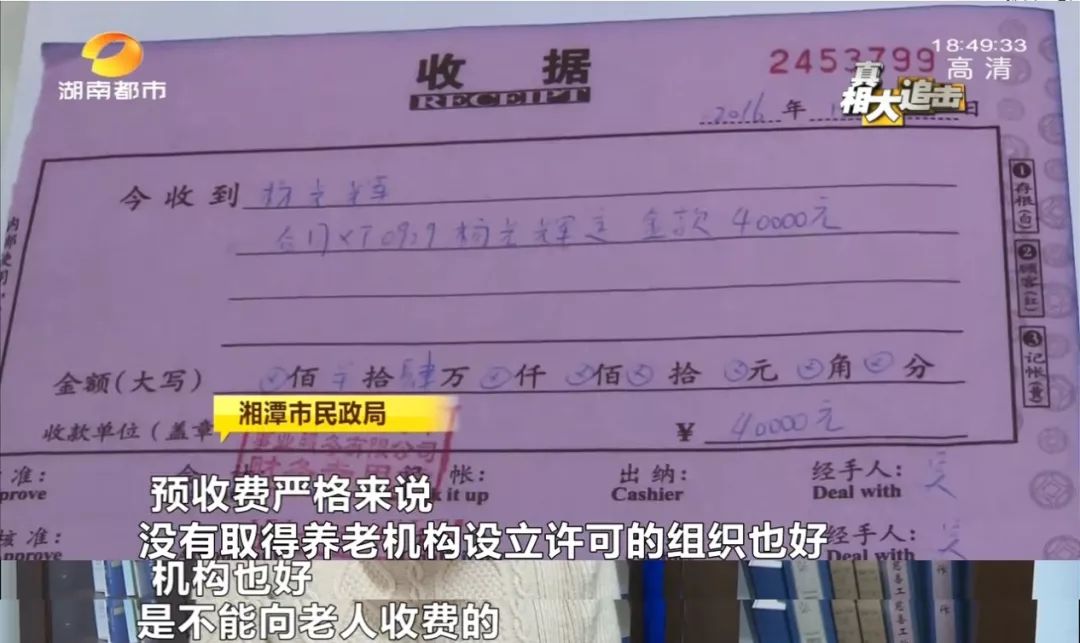 湖南都市
收 据
RECEIPT
2453799
18:49:33
高清
真相大追击
2016 年
日
今收到 杨光辉
合同XT0939杨光辉定金款40000元
金额(大写) 佰 拾 肆 万 仟 佰 拾 元 角 分
收款单位(盖章
¥ 40000元
湘潭市民政局
事业服务有限公司
财务专用
①存根(白)
②顾客(红)
③记帐(黄)
准:
prove
帐:
it up
出纳:
Cashier
经手人:
Deal with
核准:
prove
经手人:
Deal with
预收费严格来说
没有取得养老机构设立许可的组织也好
机构也好
是不能向老人收费的
慈善工
作
慈善工
作